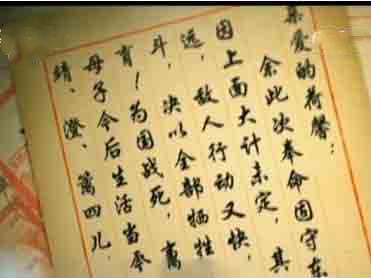 亲爱的荷馨:
余此次奉命固守东
因上面大计未定,其
远,敌人行动又快,
斗,决以全部牺牲
育!为国战死,
母子今后生活当
靖、澄、篱四儿,